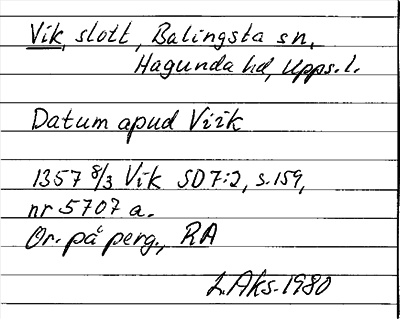 Vik, slott, Balingsta sn,
Hagunda hd, Upps. l.
Datum apud Viik
1357 8/3 Vik SD 7:2, s. 159,
nr 5707 a.
Or. på perg., RA
L. Aks. 1980